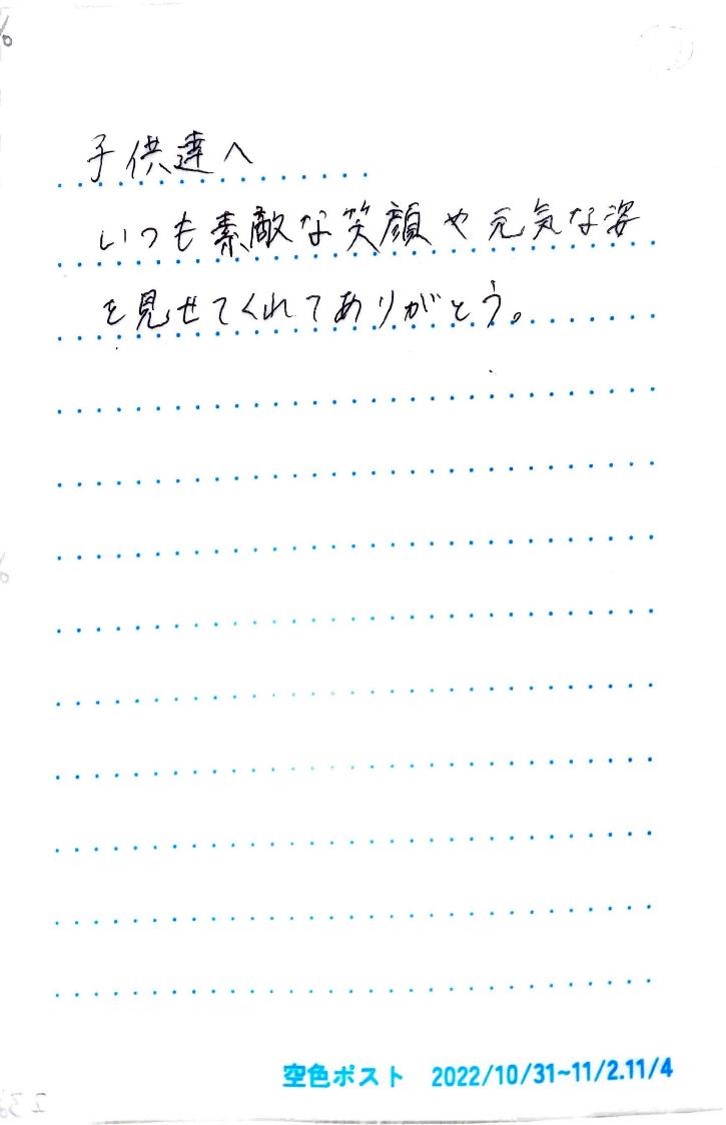 子供達へ
いつも素敵な笑顔や元気な姿
を見せてくれてありがとう。
空色ポスト 2022/10/31~11/2.11/4